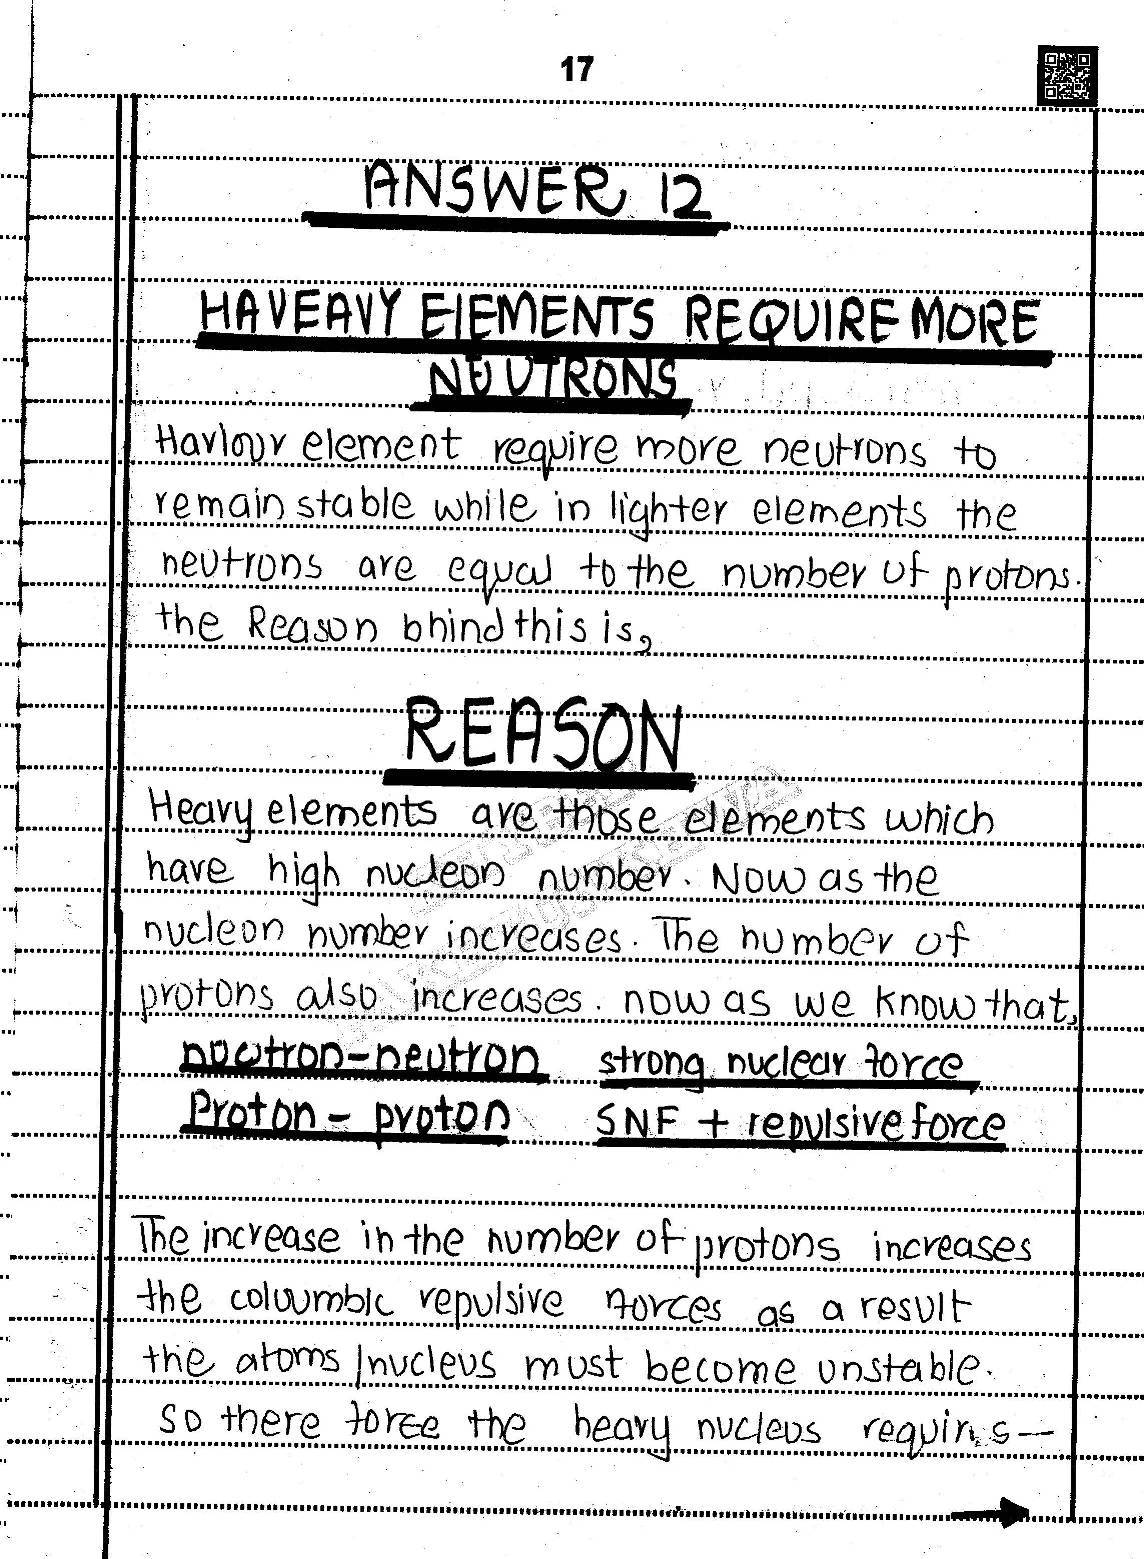 17
ANSWER 12
HAVEAVY ElEMENTS REQUIRE MORE
NEUTRONS
element require more neutrons to
remain stable while in lighter elements the
neutrons are equal to the number of protons.
the Reason bhind this is,
REASON
Heavy elements are those elements which
have high nucleon number. Now as the
nucleon number increases. The number of
protons also increases. now as we know that,
neutron-neutron strong nuclear force
Proton - proton SNF + repulsive force
The increase in the number of protons increases
the repulsive forces as a result
the atoms/nucleus must become unstable.
So there force the heavy nucleus —